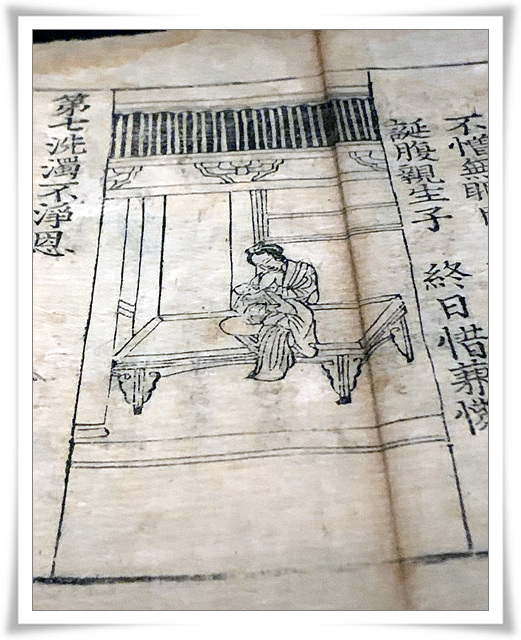 不憎
誕腹親生子 終日惜兼憐
第七洗濁不淨恩